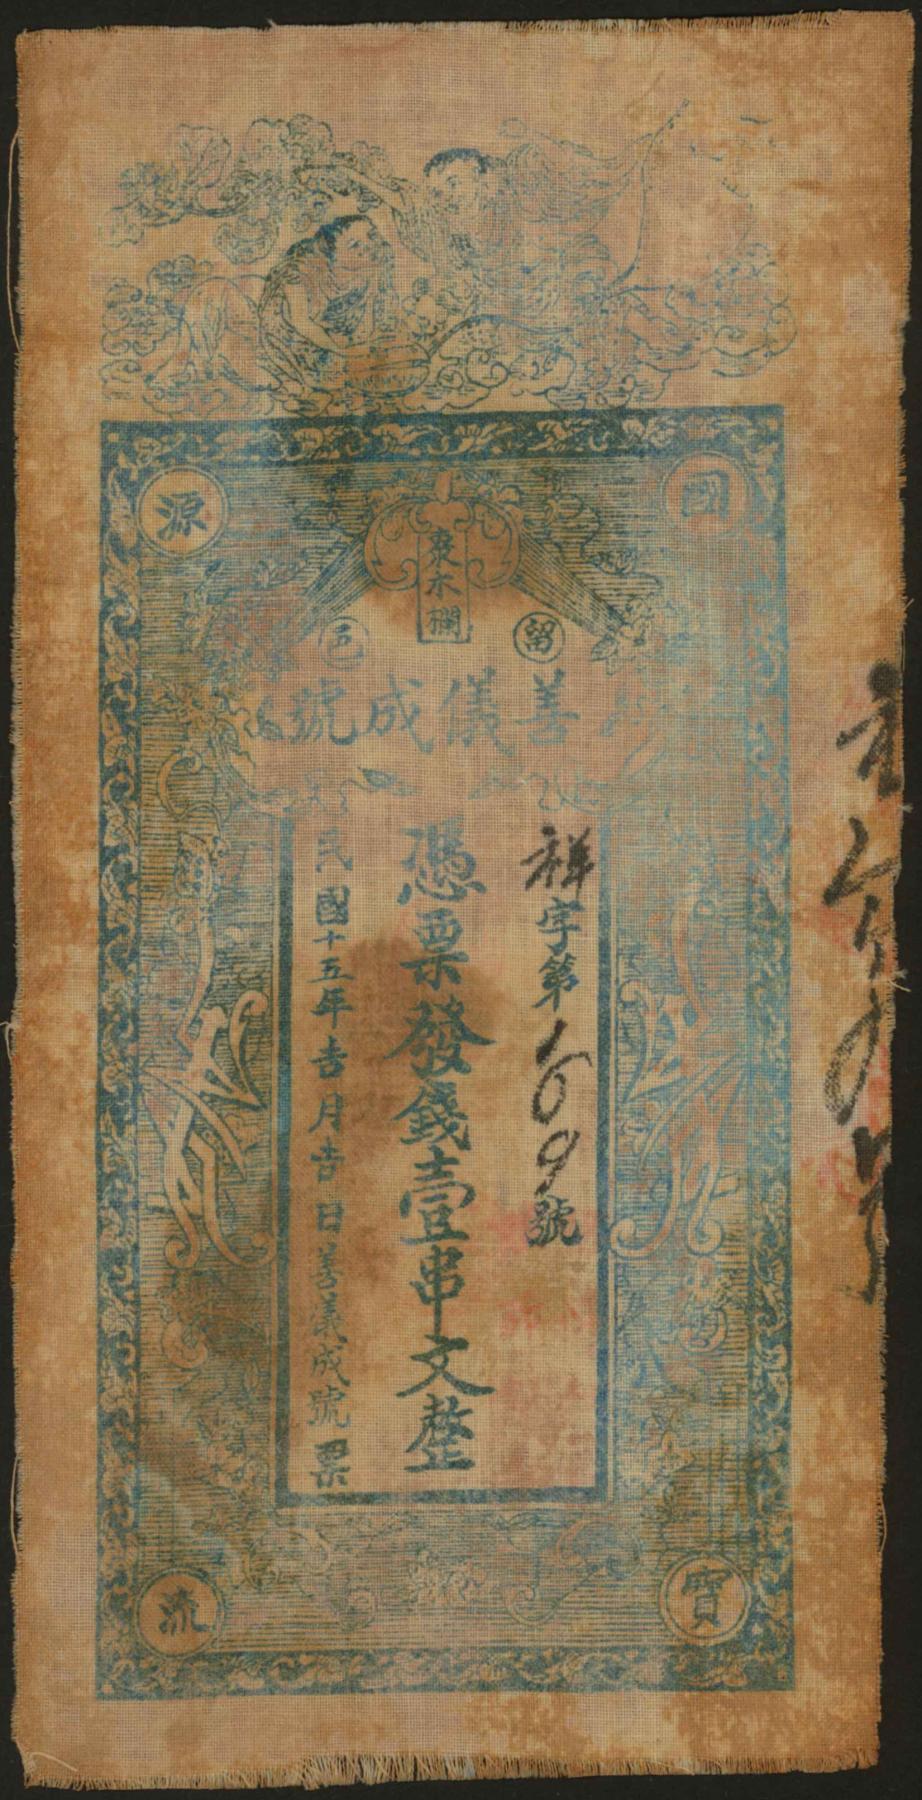 國寶源流
東木欄
留邑
善儀成號
祥字第169號
憑票發錢壹串文整
民國十五年吉月吉日善義成號票